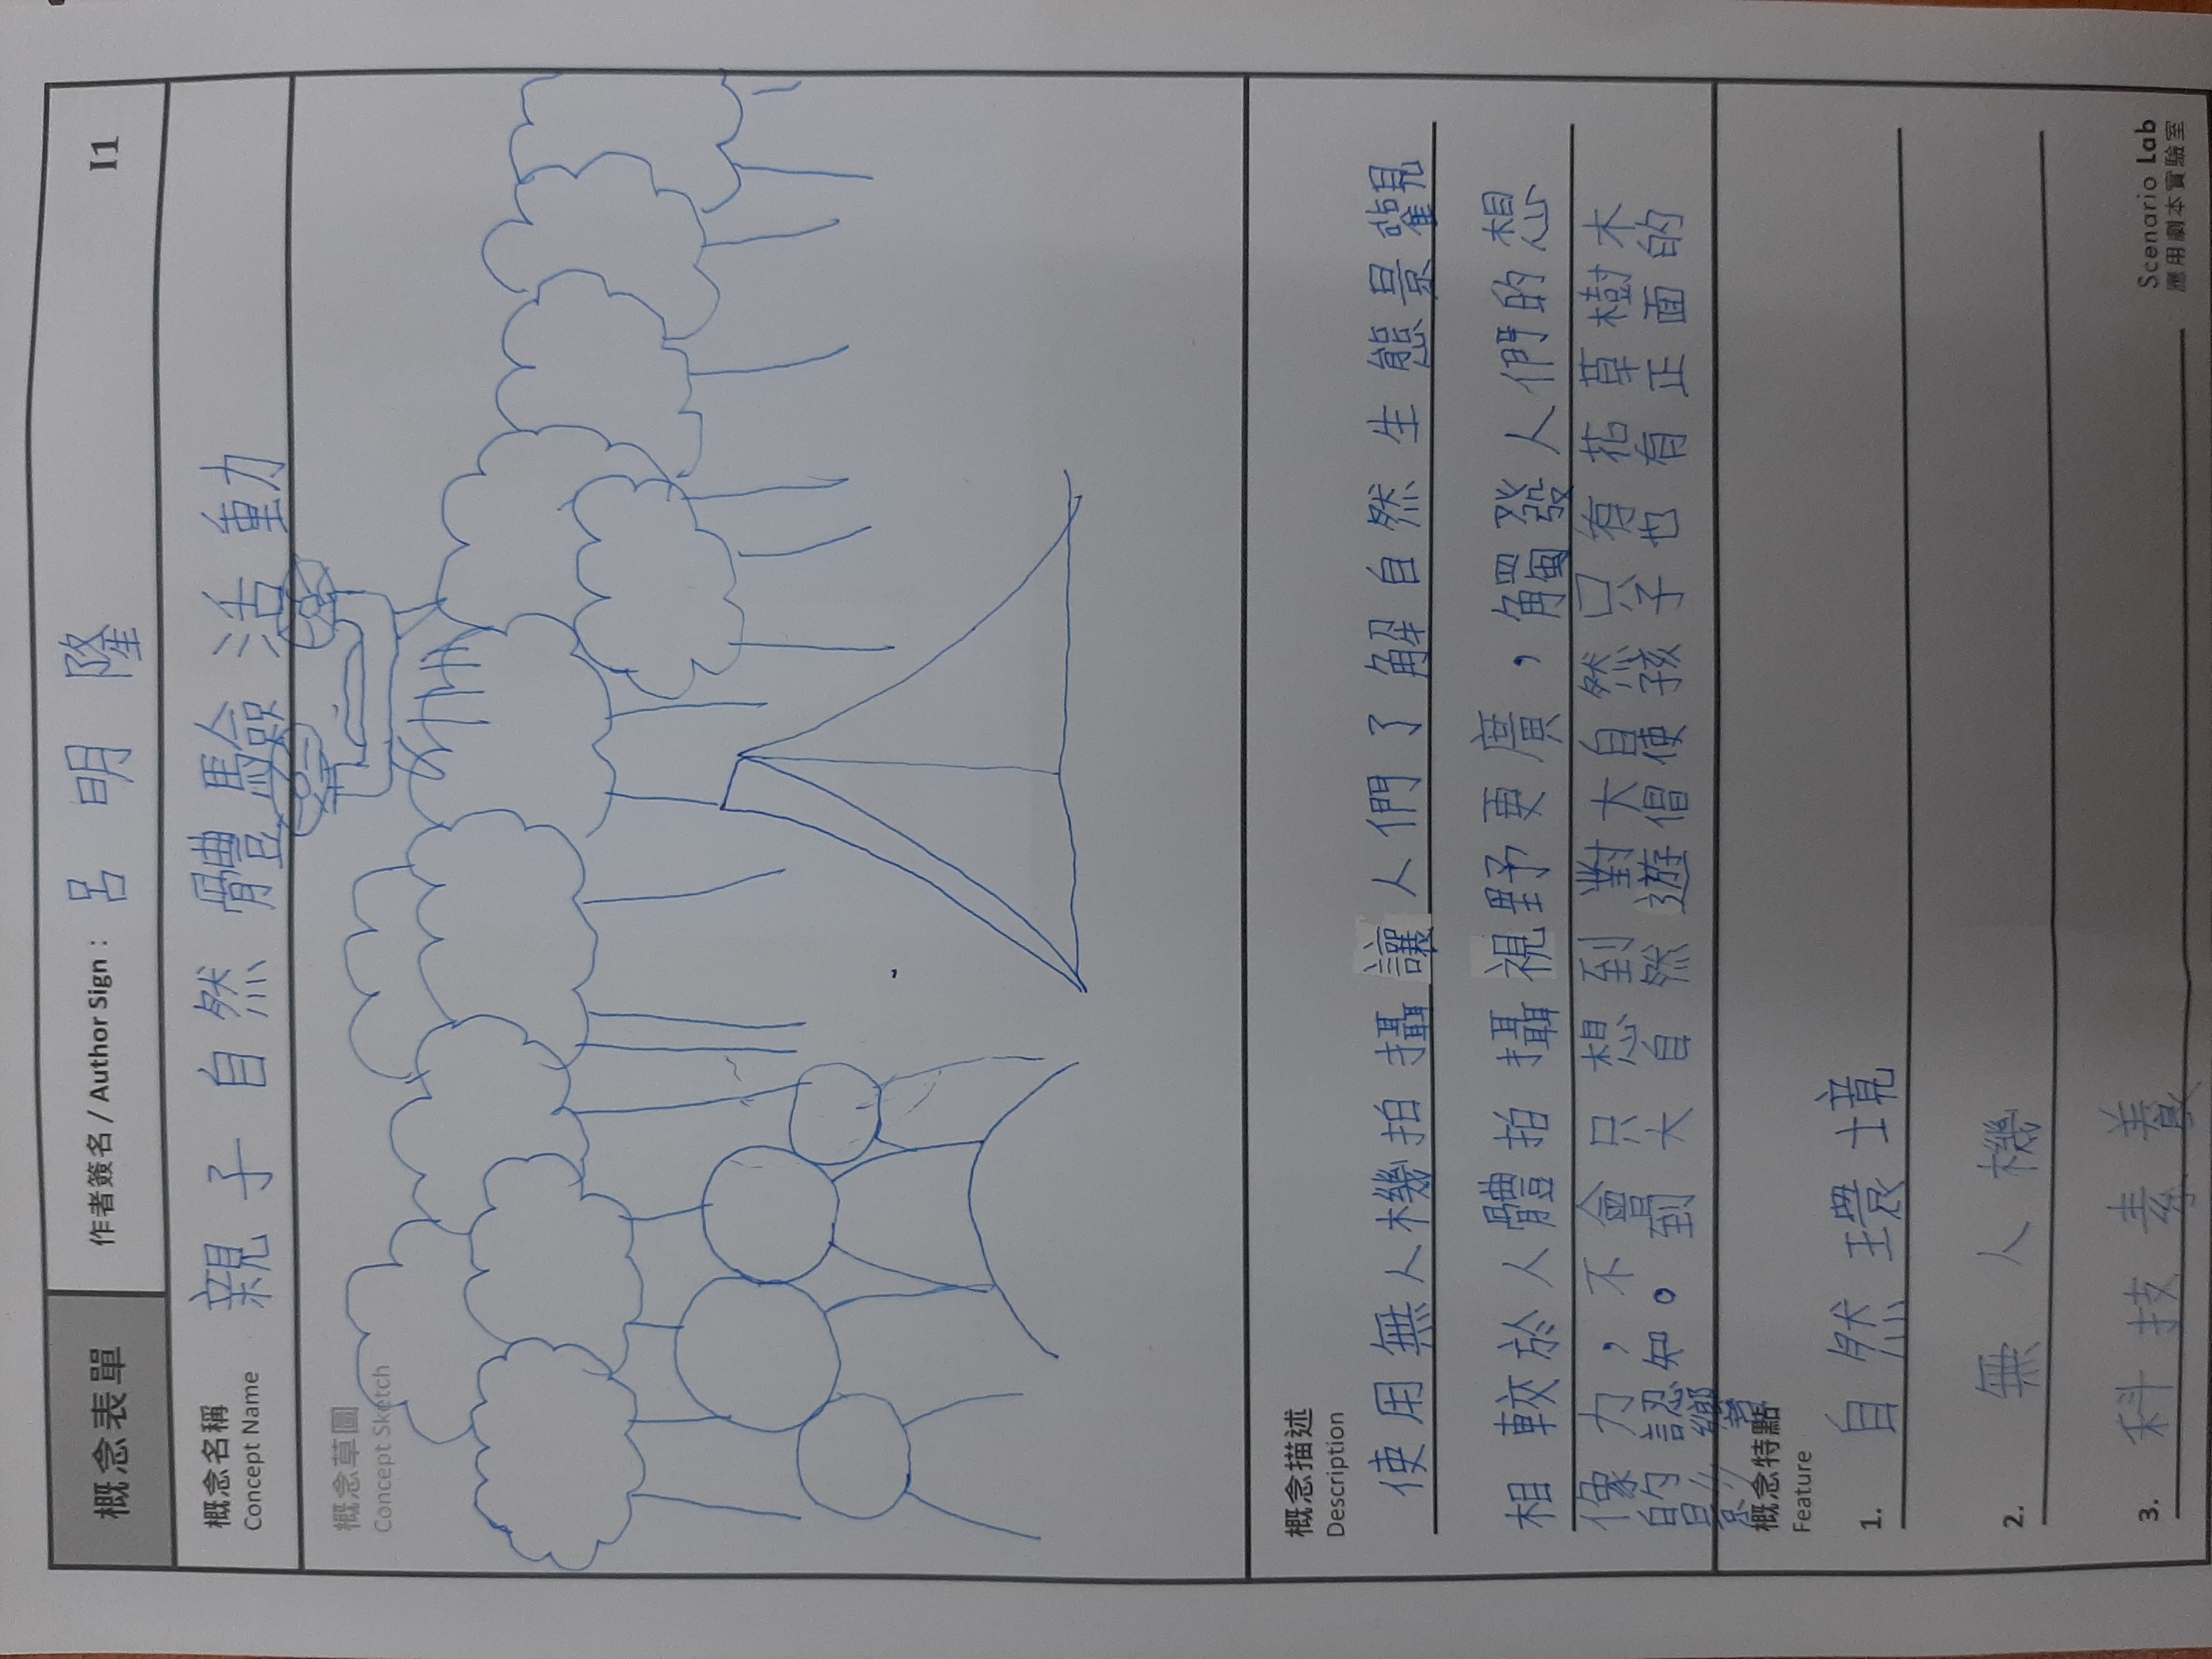 概念表單
作者簽名 / Author Sign： 呂明隆
I1
概念名稱
Concept Name
親子自然體驗活動
概念草圖
Concept Sketch
概念描述
Description
使用無人機拍攝讓人們了解自然生態景觀
相較於人體拍攝視野更廣，觸發人們的想
像力，不會只想到對大自然只有花草樹木
的認知。到大自然遊倡使孩子也有正面的
影響
概念特點
Feature
1. 自然環境
2. 無人機
3. 科技素養
Scenario Lab
應用劇本實驗室